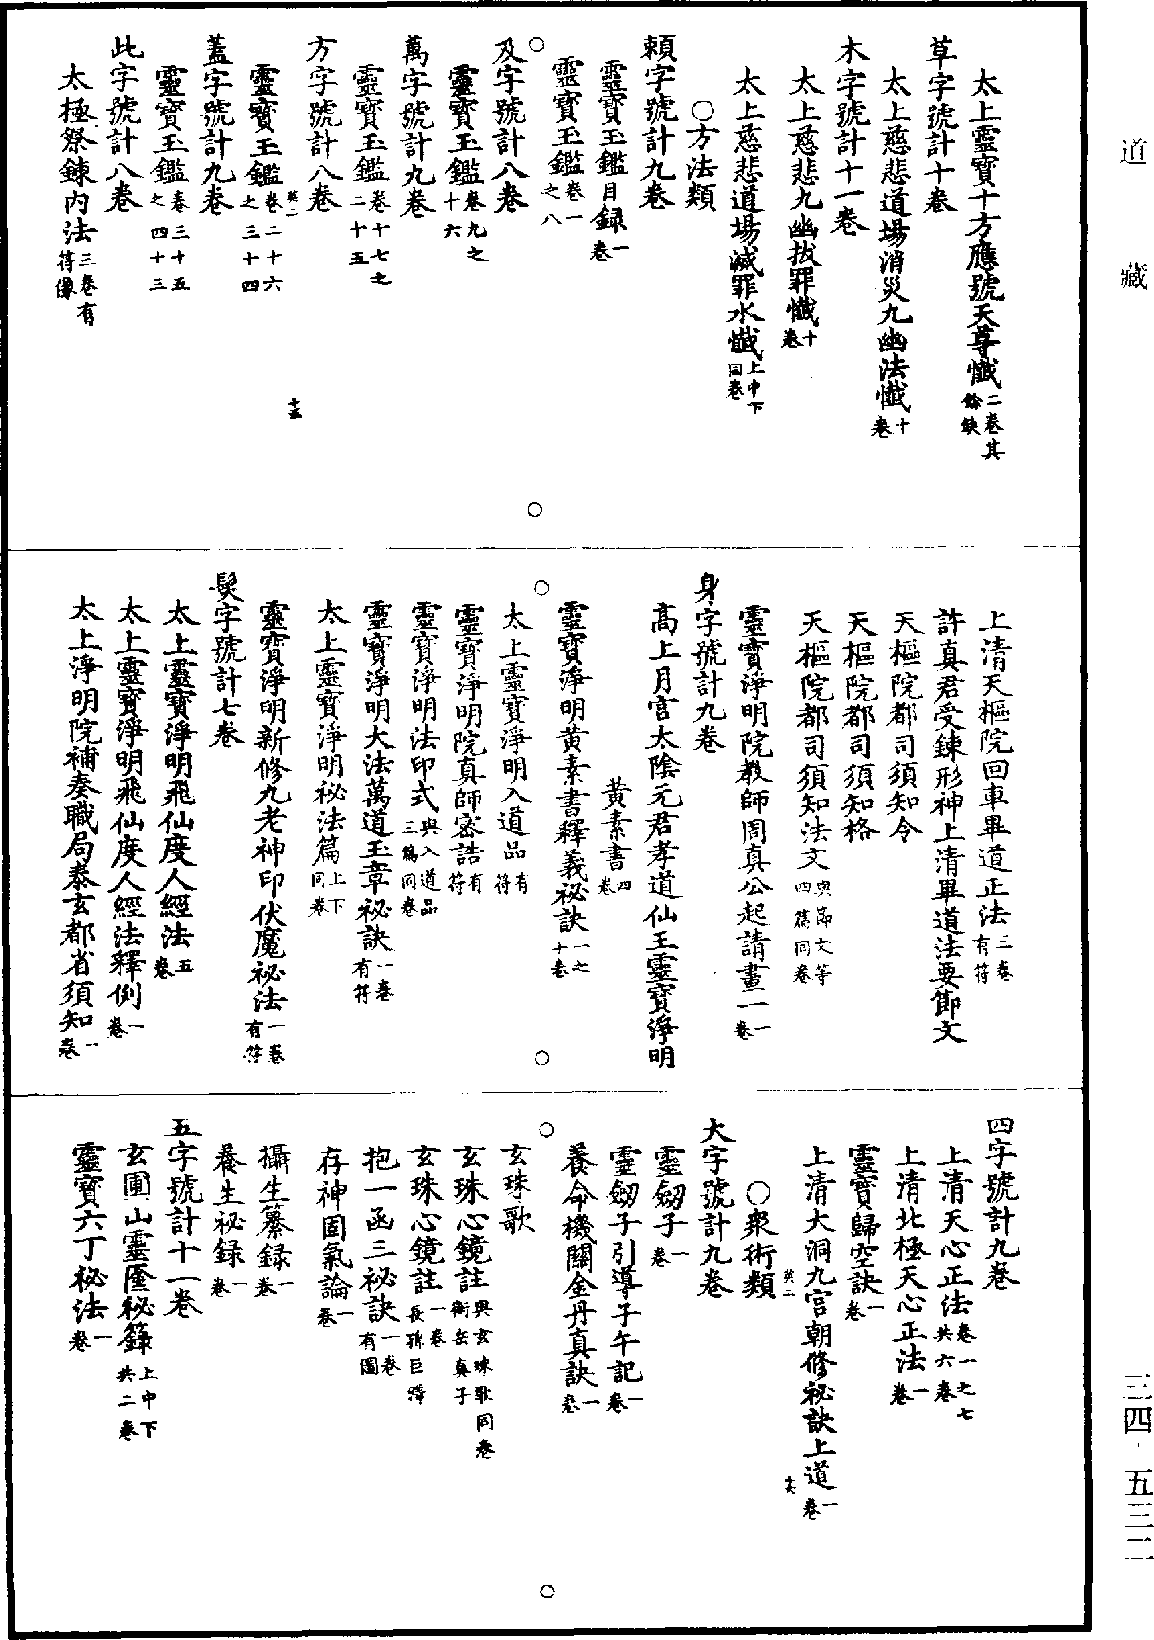 道藏
太上靈寶十方應號天尊懺二卷其餘缺
草字號計十卷
太上慈悲道場消災九幽法懺十卷
木字號計十一卷
太上慈悲九幽拔罪懺十卷
太上慈悲道場滅罪水懺上中下同卷
○方法類
賴字號計九卷
靈寶玉鑑目錄一卷
靈寶玉鑑卷一之八
及字號計八卷
靈寶玉鑑卷九之十六
萬字號計九卷
靈寶玉鑑卷十七之二十五
方字號計八卷
英二
十五
靈寶玉鑑卷二十六之三十四
蓋字號計九卷
靈寶玉鑑卷三十五之四十三
此字號計八卷
太極祭鍊內法三卷有符像
上清天樞院回車畢道正法三卷有符
許真君受鍊形神上清畢道法要節文
天樞院都司須知令
天樞院都司須知格
天樞院都司須知法文與節文等四篇同卷
靈寶淨明院教師周真公起請畫一一卷
身字號計九卷
高上月宮太陰元君孝道仙王靈寶淨明
黃素書四卷
靈寶淨明黃素書釋義祕訣一之十卷
太上靈寶淨明入道品有符
靈寶淨明院真師密誥有符
靈寶淨明法印式與入道品三篇同卷
靈寶淨明大法萬道玉章祕訣一卷有符
太上靈寶淨明祕法篇上下同卷
靈寶淨明新修九老神印伏魔祕法一卷有符
髮字號計七卷
太上靈寶淨明飛仙度人經法五卷
太上靈寶淨明飛仙度人經法釋例一卷
太上淨明院補奏職局泰玄都省須知一卷
四字號計九卷
上清天心正法卷一之七共六卷
上清北極天心正法一卷
靈寶歸空訣一卷
上清大洞九宮朝修祕訣上道一卷
英二
十六
○衆術類
大字號計九卷
靈劒子一卷
靈劒子引導子午記一卷
養命機關金丹真訣一卷
玄珠歌
玄珠心鏡註與玄珠歌同卷衡岳真子
玄珠心鏡註一卷長孫巨澤
抱一函三祕訣一卷有圖
存神固氣論一卷
攝生纂錄一卷
養生祕錄一卷
五字號計十一卷
玄圃山靈𠥎秘籙上中下共二卷
靈寶六丁秘法一卷
三四·五三二